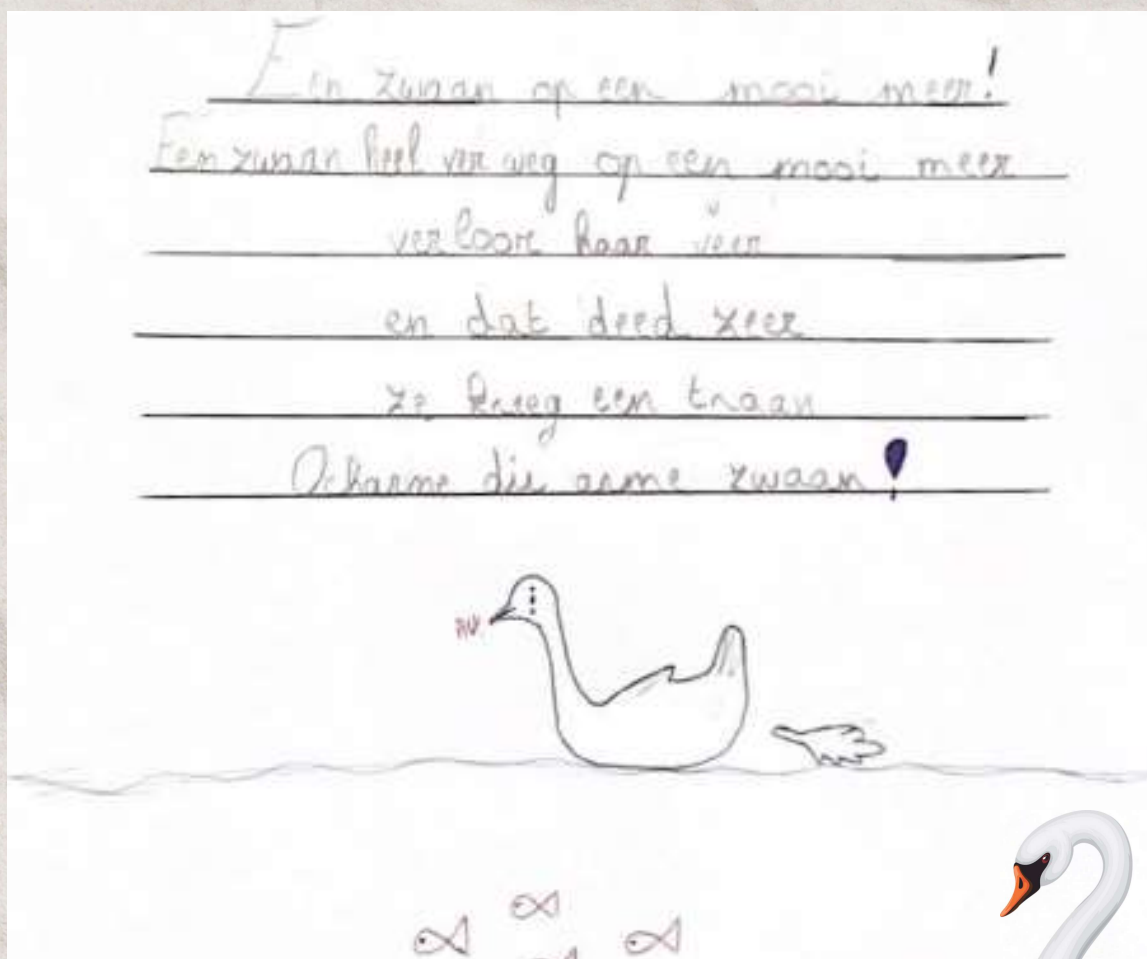 Een zwaan op een mooi meer!
Een zwaan heel ver weg op een mooi meer
verloor haar veer
en dat deed zeer
ze kreeg een traan
Ocharme die arme zwaan!
AU!